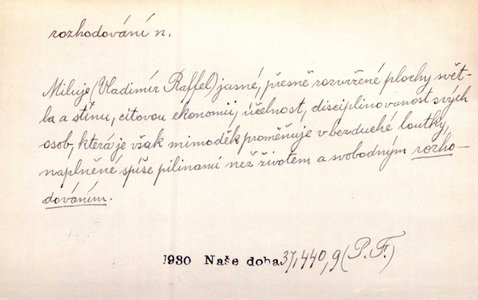 rozhodování n.
Miluje (Vladimír Raffel) jasné, přesně rozvržené plochy svět-
la a stínu, citovou ekonomii, účelnost, disciplinovanost svých
osob, která je však mimoděk proměňuje v bezduché loutky,
naplněné spíše pilinami než životem a svobodným rozho-
dováním.
1930 Naše doba 37,440,9 (P. F.)